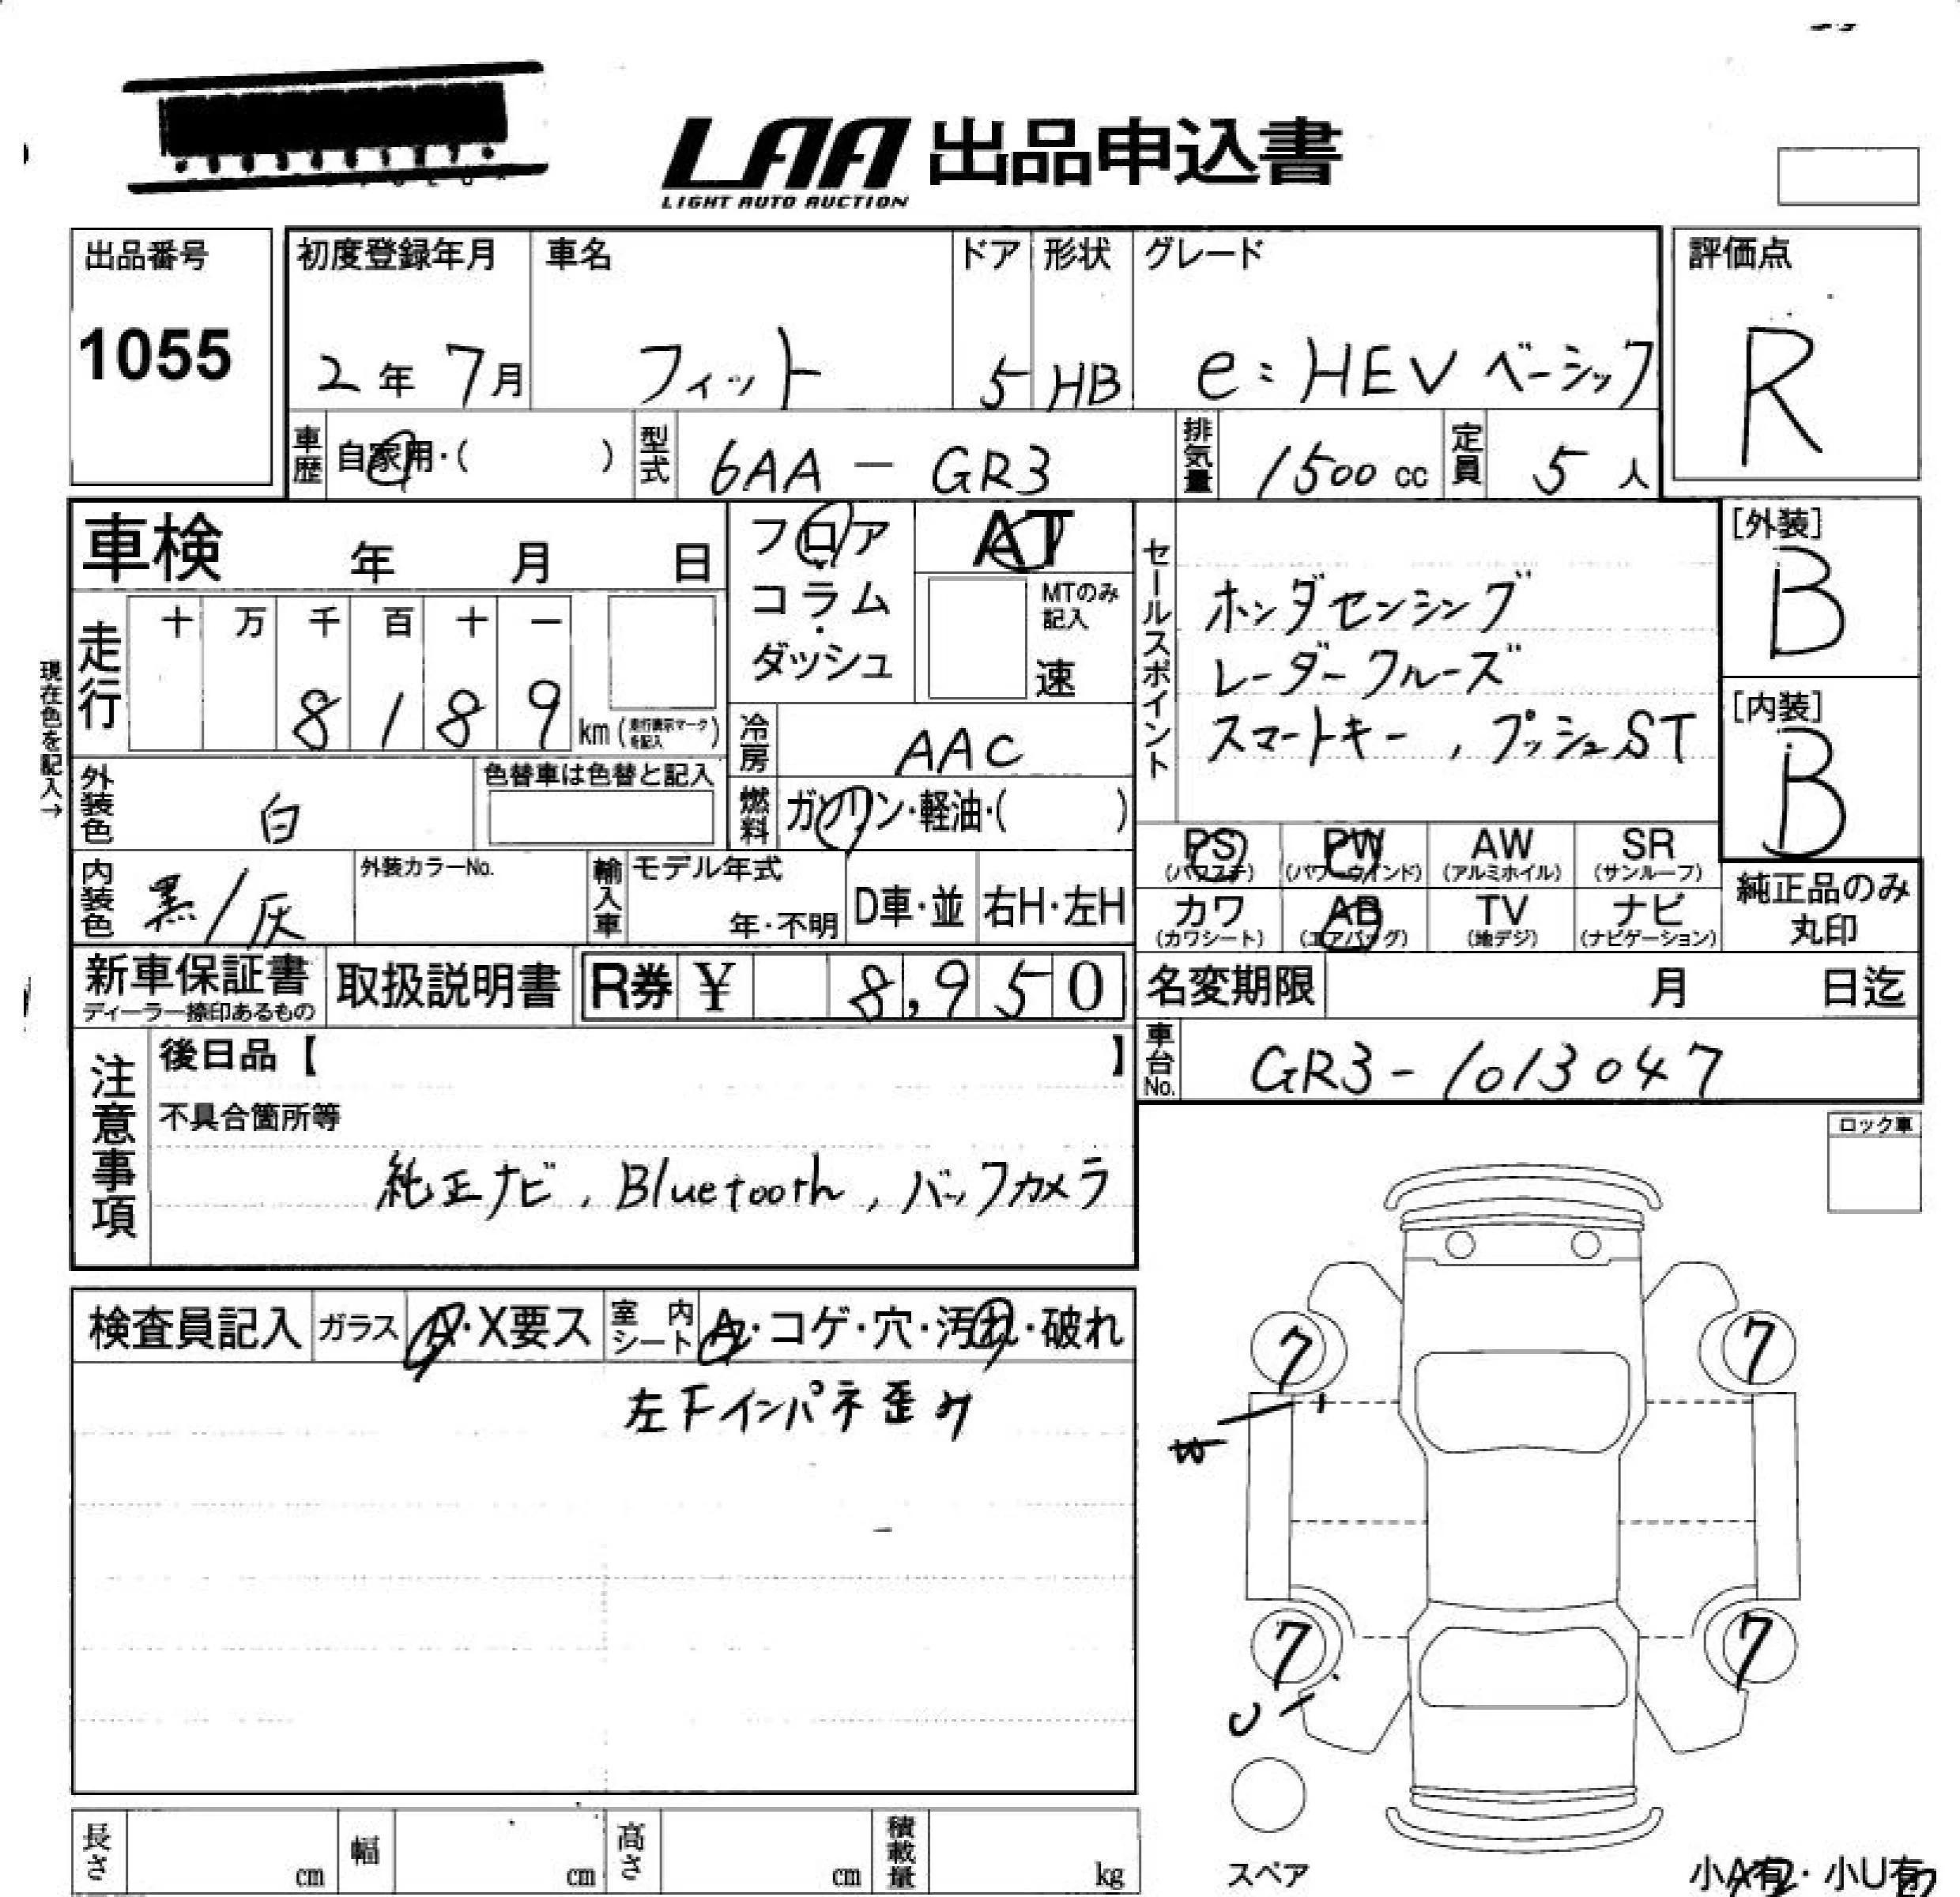 LAA 出品申込書
LIGHT AUTO AUCTION
出品番号
1055
初度登録年月
2年 7月
車名
フィット
ドア
5
形状
HB
グレード
e:HEV ベーシック
評価点
R
車歴 自家用・( )
型式 6AA - GR3
排気量 1500 cc
定員 5 人
車検 年 月 日
フロア
コラム
ダッシュ
AT
MTのみ
記入
速
セールスポイント
ホンダセンシング
レーダークルーズ
スマートキー, プッシュST
[外装]
B
[内装]
B
現在色を記入→
走行
十 万 千 百 十 一
8 1 8 9
km (走行表示マークを記入)
冷房 AAC
外装色 白
色替車は色替と記入
燃料 ガソリン・軽油・( )
PS
(パワステ)
PW
(パワーウインド)
AW
(アルミホイル)
SR
(サンルーフ)
カワ
(カワシート)
AB
(エアバッグ)
TV
(地デジ)
ナビ
(ナビゲーション)
純正品のみ
丸印
内装色 黒/灰
外装カラーNo.
輸入車
モデル年式
年・不明
D車・並
右H・左H
新車保証書
ディーラー捺印あるもの
取扱説明書
R券 ¥ 8,950
名変期限 月 日迄
車台No. GR3-1013047
注意事項
後日品【 】
不具合箇所等
純正ナビ, Bluetooth, バックカメラ
ロック車
検査員記入
ガラス A・X要ス
室内シート A・コゲ・穴・汚れ・破れ
左Fインパネ歪み
7 7
W
7 7
U
スペア
長さ cm
幅 cm
高さ cm
積載量 kg
小A有・小U有